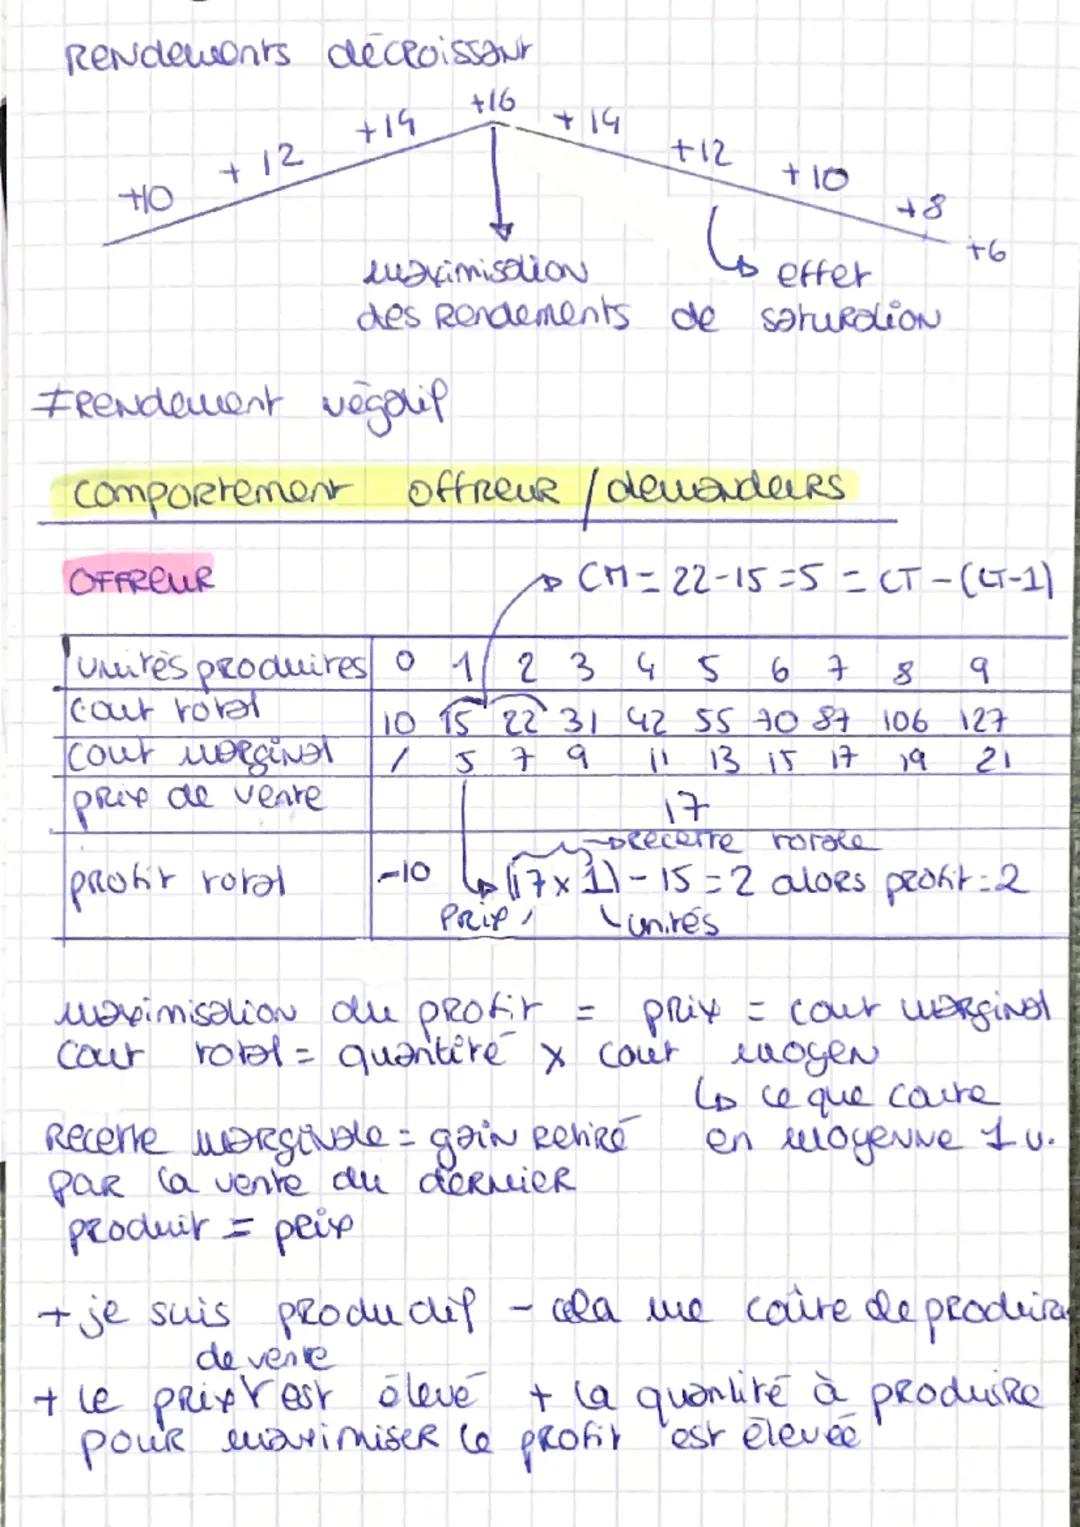 Rendements décroissant
+10 + 12 +14 +16 + 14 +12 + 10 +8 +6
maximisation des Rendements
↳ effet de saturation
≠ Rendement négatif
comportement offreur / demandeurs
OFFREUR
→ CM = 22-15 = 5 = CT - (CT-1)
unités produites 0 1 2 3 4 5 6 7 8 9
cout total 10 15 22 31 42 55 70 87 106 127
cout marginal / 5 7 9 11 13 15 17 19 21
prix de vente 17
→ recette totale
profit total -10 ↳ (17 x 1) - 15 = 2 alors profit = 2
Prix unités
maximisation du profit = prix = cout marginal
cout total = quantité x cout moyen
↳ ce que coute
en moyenne 1 u.
Recette marginale = gain retiré
par la vente du dernier
produit = prix
+ je suis productif - cela me coûte de produire
de vente
+ le prix est élevé + la quantité à produire
pour maximiser le profit est élevée